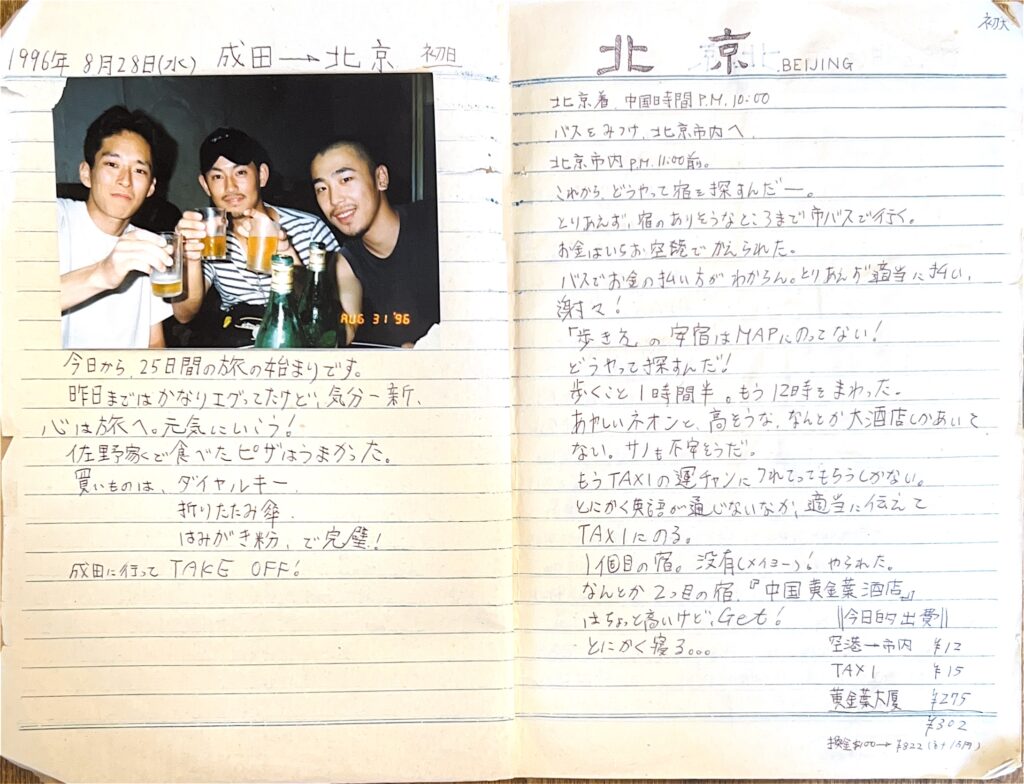 1996年 8月28日(水) 成田→北京 初日
AUG 31 '96
今日から、25日間の旅の始まりです。
昨日まではかなりエグってたけど、気分一新、
心は旅へ。元気にいこう!
佐野家で食べたピザはうまかった。
買いものは、ダイヤルキー、
折りたたみ傘、
はみがき粉、で完璧!
成田に行って TAKE OFF!
北京 BEIJING
北京着、中国時間 P.M. 10:00
バスをみつけ、北京市内へ、
北京市内 P.M. 11:00前。
これから、どうやって宿を探すんだー。
とりあえず、宿のありそうなところまで市バスで行く。
お金はいちお空港でかえられた。
バスでお金の払い方がわからん。とりあえず適当に払い、
謝々!
「歩き方」の安宿はMAPにのってない!
どうやって探すんだ!
歩くこと1時間半。もう12時をまわった。
あやしいネオンと、高そうな、なんとか大酒店しかあいて
ない。サノも不安そうだ。
もうTAXIの運チャンにつれてってもらうしかない。
とにかく英語が通じないなか、適当に伝えて
TAXIにのる。
1個目の宿。没有(メイヨー)! やられた。
なんとか2つ目の宿、『中国黄金葉酒店』
はちょっと高いけど、Get!
とにかく寝る...
今日的出費
空港→市内 ¥12
TAXI ¥15
黄金葉大厦 ¥275
¥302